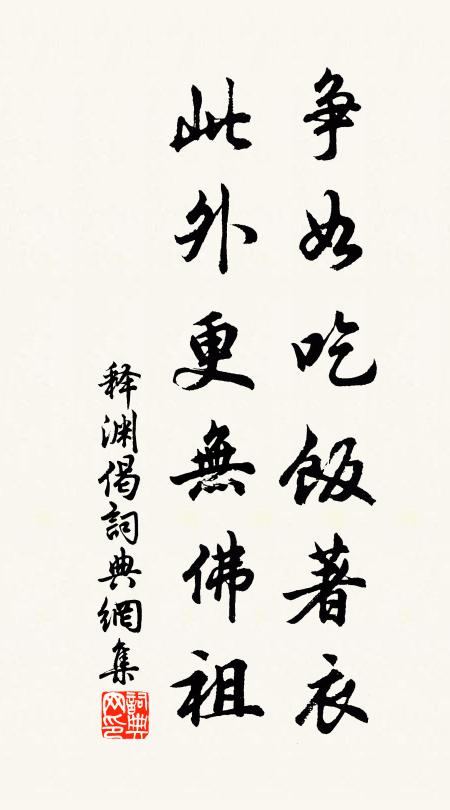 争如吃飯著衣
此外更無佛祖
释渊偈詞典網集
詞典網印